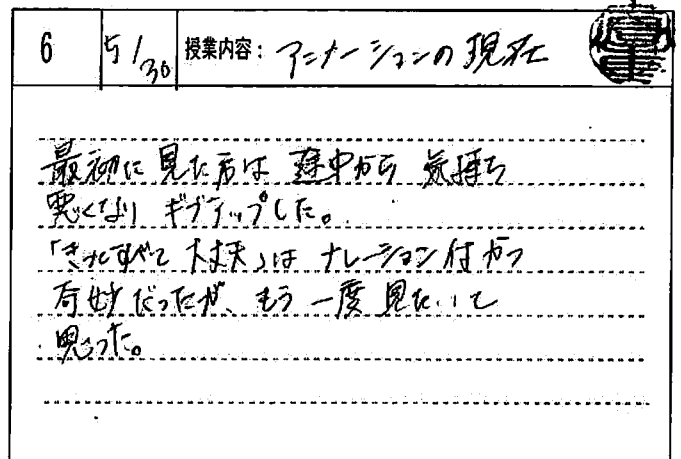 6 5/30 授業内容: アニメーションの現在
最初に見た方は途中から気持ち
悪くなりギブアップした。
「きっとすべて大丈夫」はナレーション付かつ
奇妙だったが、もう一度見たいと
思った。